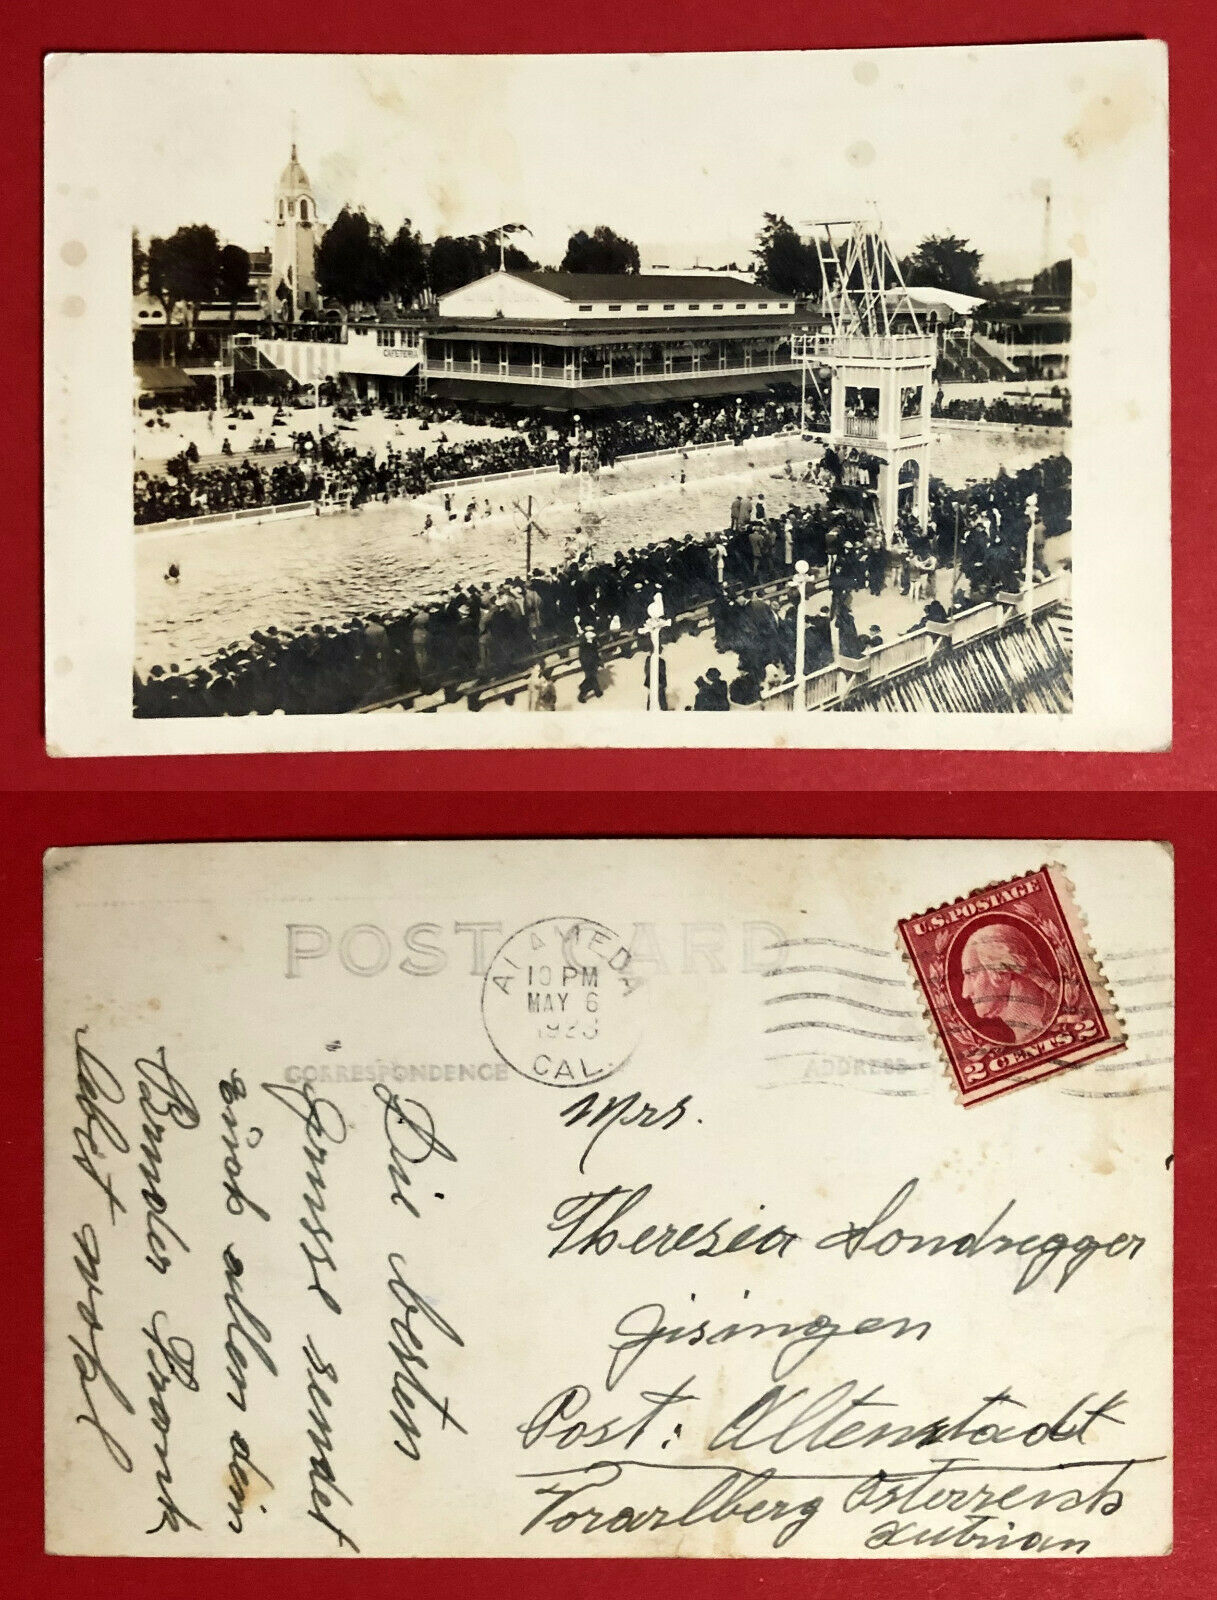 CAFETERIA
POST CARD
ALAMEDA
10 PM
MAY 6
1923
CAL.
U.S. POSTAGE
2 CENTS 2
CORRESPONDENCE
ADDRESS
Die besten
Grüsse sendet
eüch allen dein
Brüder Frank
lebt wohl
Mrs.
Theresia Sondregger
Jisingen
Post: Altenstadt
Vorarlberg Österreich